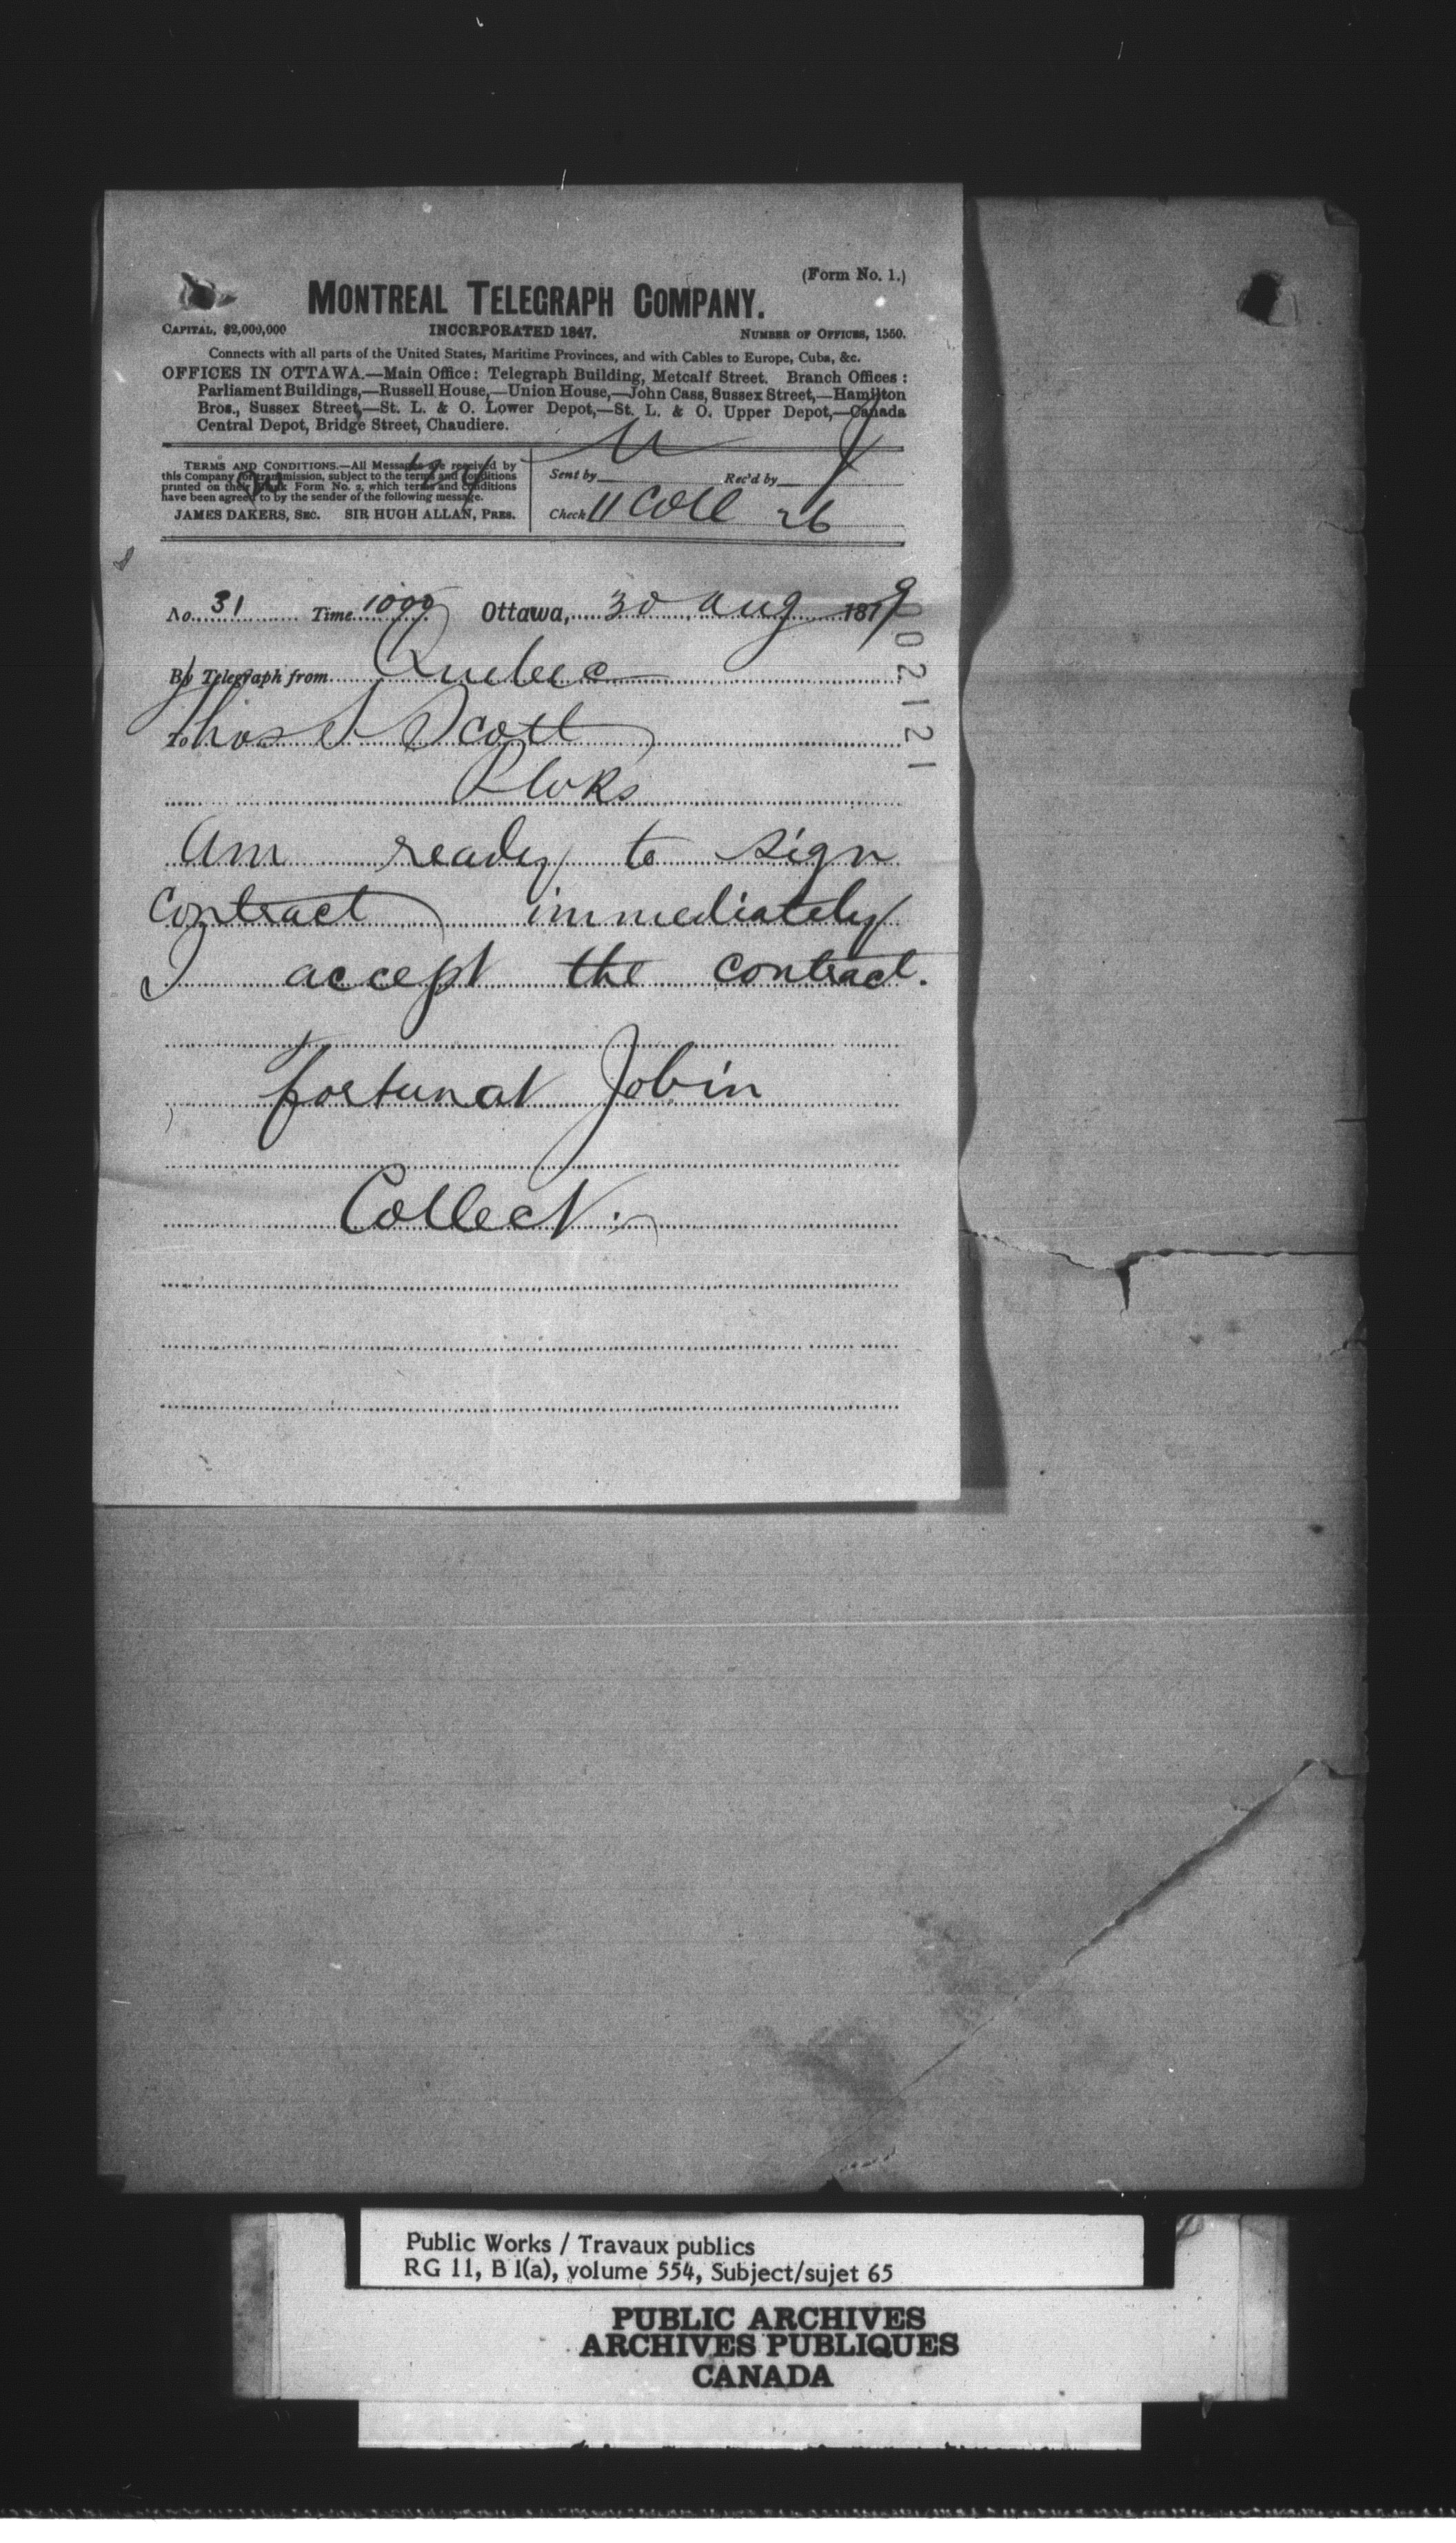 (Form No. 1.)
MONTREAL TELEGRAPH COMPANY.
CAPITAL, $2,000,000 INCORPORATED 1847. NUMBER OF OFFICES, 1550.
Connects with all parts of the United States, Maritime Provinces, and with Cables to Europe, Cuba, &c.
OFFICES IN OTTAWA.—Main Office: Telegraph Building, Metcalf Street. Branch Offices:
Parliament Buildings,—Russell House,—Union House,—John Cass, Sussex Street,—Hamilton
Bros., Sussex Street,—St. L. & O. Lower Depot,—St. L. & O. Upper Depot,—Canada
Central Depot, Bridge Street, Chaudiere.
TERMS AND CONDITIONS.—All Messages are received by
this Company for transmission, subject to the terms and conditions
printed on their Blank Form No. 2, which terms and conditions
have been agreed to by the sender of the following message.
JAMES DAKERS, SEC. SIR HUGH ALLAN, PRES.
Sent by Rec'd by
Check 11 Coll 26
No. 31 Time Ottawa, 30 Aug 1879
By Telegraph from Quebec
To Thos S Scott
P Wks
Am ready to sign
contract immediately
I accept the contract.
Fortunat Jobin
Collect.
02121
Public Works / Travaux publics
RG 11, B 1(a), volume 554, Subject/sujet 65
PUBLIC ARCHIVES
ARCHIVES PUBLIQUES
CANADA